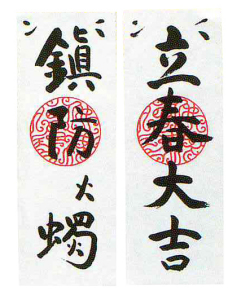 立春大吉
鎮防火蠋